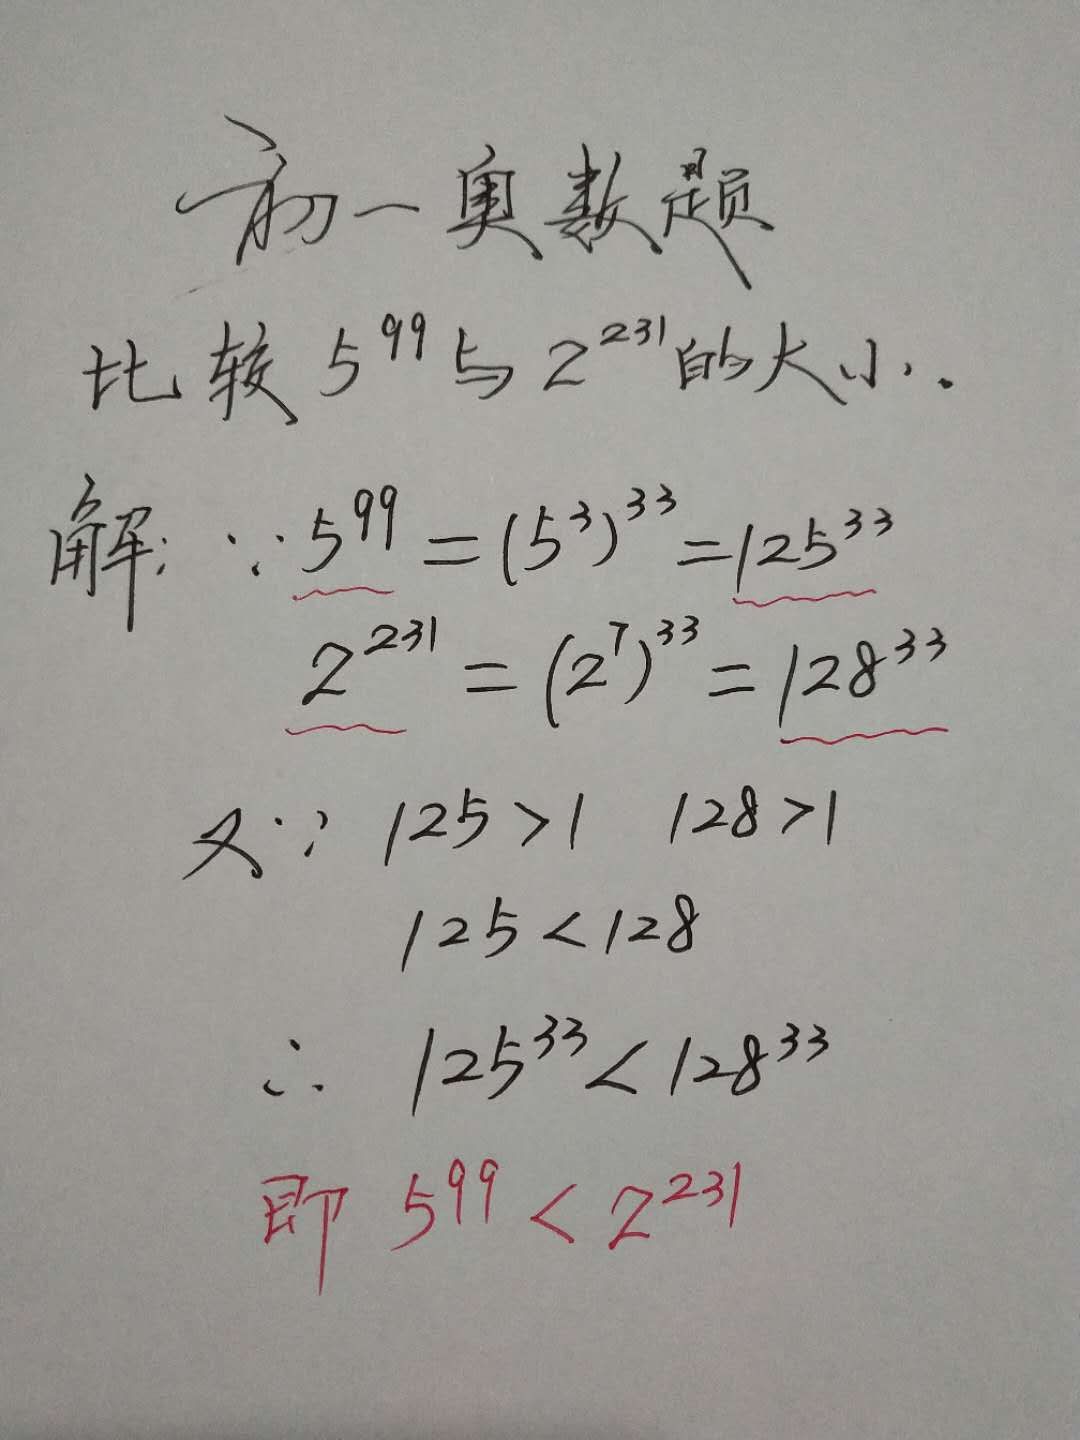 初一奥数题
比较 5⁹⁹与 2²³¹的大小.
解: ∵ 5⁹⁹ = (5³)³³ = 125³³
2²³¹ = (2⁷)³³ = 128³³
又∵ 125>1 128>1
125<128
∴ 125³³<128³³
即 5⁹⁹<2²³¹